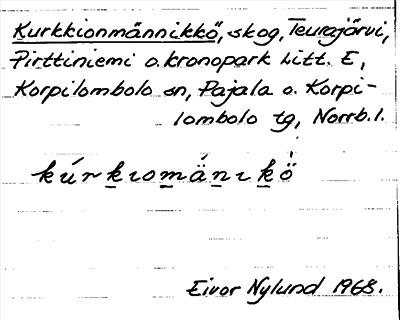 Kurkkionmännikkö, skog, Teurajärvi,
Pirttiniemi o. kronopark Litt. E,
Korpilombolo sn, Pajala o. Korpi-
lombolo tg, Norrb. l.
kúrkıomänıkö
Eivor Nylund 1968.